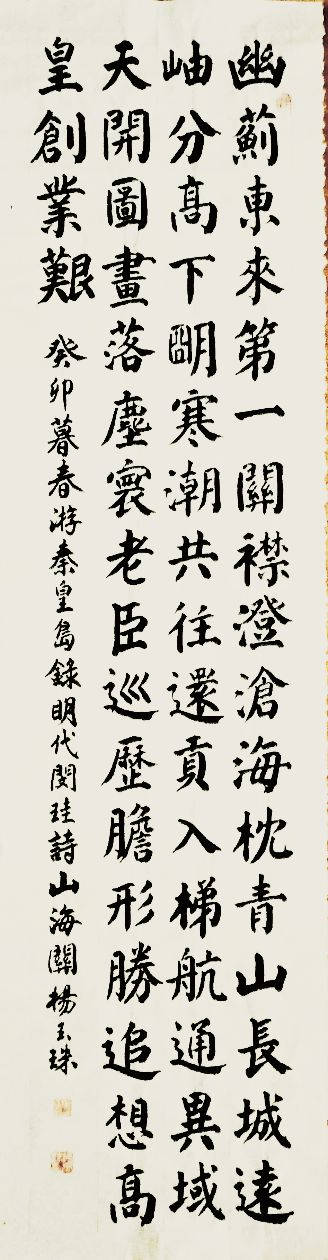 幽薊東來第一關襟澄滄海枕青山長城遠
岫分髙下朙寒潮共往還貢入梯航通異域
天開圖畫落塵寰老臣巡歷瞻形勝追想髙
皇創業艱
癸卯暮春游秦皇島錄明代閔珪詩山海關楊玉珠